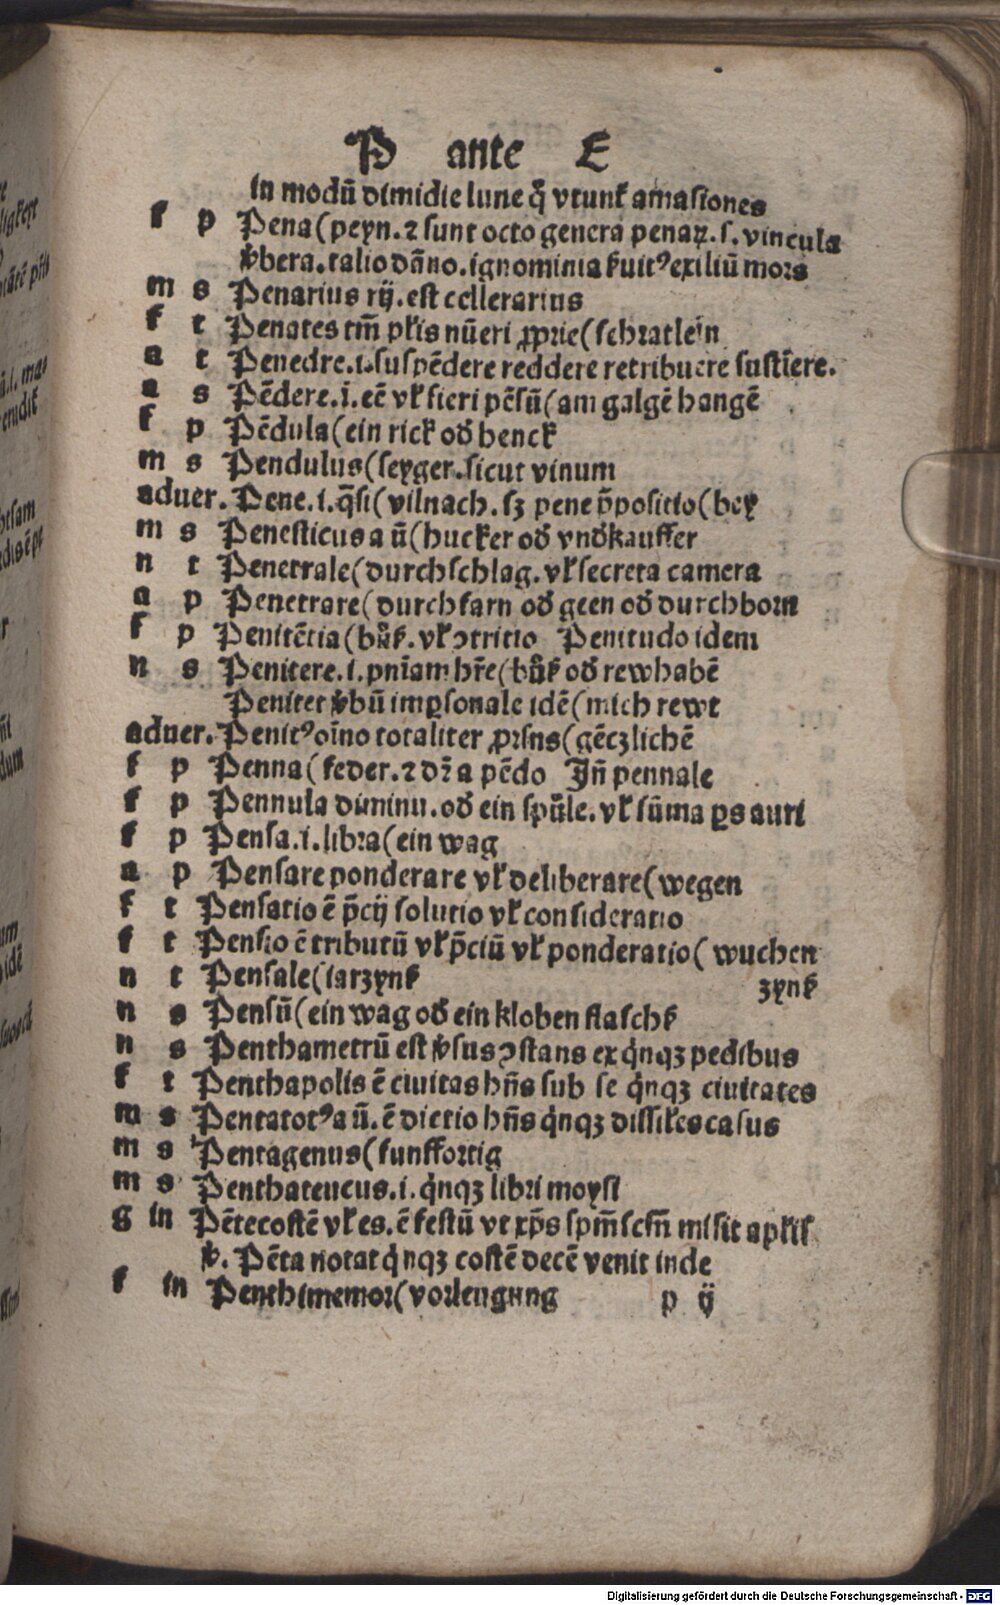 P ante E
in modū dimidie lune q̄ vtunt amasiones
f p Pena(peyn. ⁊ sunt octo genera penaꝝ. s. vincula
ꝟbera. talio dāno. ignominia ẜuitꝰ exiliū mors
m s Penarius rij. est cellerarius
f t Penates tm̄ pľis nūeri ꝓprie(schratlein
a t Penedre. i. suspēdere reddere retribuere sustiēre.
a s Pēdere. i. eē vľ fieri pēsū(am galgē hangē
f p Pēdula(ein rick od̕ henck
m s Pendulus(seyger. sicut vinum
aduer. Pene. i. q̄si(vilnach. sꝫ pene p̄positio(bey
m s Penesticus a ū(hucker od̕ vnd̕kauffer
n t Penetrale(durchschlag. vľ secreta camera
a p Penetrare(durchfarn od̕ geen od̕ durchborn
f p Penitētia(bůß. vľ ꝯtritio Penitudo idem
n s Penitere. i. pnīam hr̄e(bůß od̕ rewhabē
Penitet ꝟbū imꝑsonale idē(mich rewt
aduer. Penitꝰ oīno totaliter ꝓrsns(gēczlichē
f p Penna(feder. ⁊ dr̄ a pēdo Jn̄ pennale
f p Pennula diminu. od̕ ein spůle. vľ sūma ꝑs auri
f p Pensa. i. libra(ein wag
a p Pensare ponderare vľ deliberare(wegen
f t Pensatio ē p̄cij solutio vľ consideratio
f t Pensio ē tributū vľ p̄ciū vľ ponderatio(wuchen
n t Pensale(iarzynß zynß
n s Pensū(ein wag od̕ ein kloben flachß
n s Penthametrū est ꝟsus ꝯstans ex q̇nqꝫ pedibus
f t Penthapolis ē ciuitas hn̄s sub se q̇nqꝫ ciuitates
m s Pentatotꝰ a ū. ē dictio hn̄s q̇nqꝫ dissiľes casus
m s Pentagenus(funffortig
m s Penthateucus. i. q̇nqꝫ libri moysi
g in Pētecostē vľ es. ē festū vt xp̄s spm̄ scm̄ misit apľis
ꝟ. Pēta notat q̇nqꝫ costē decē venit inde
f in Penthimemor(vorlengung p ij
Digitalisierung gefördert durch die Deutsche Forschungsgemeinschaft - DFG